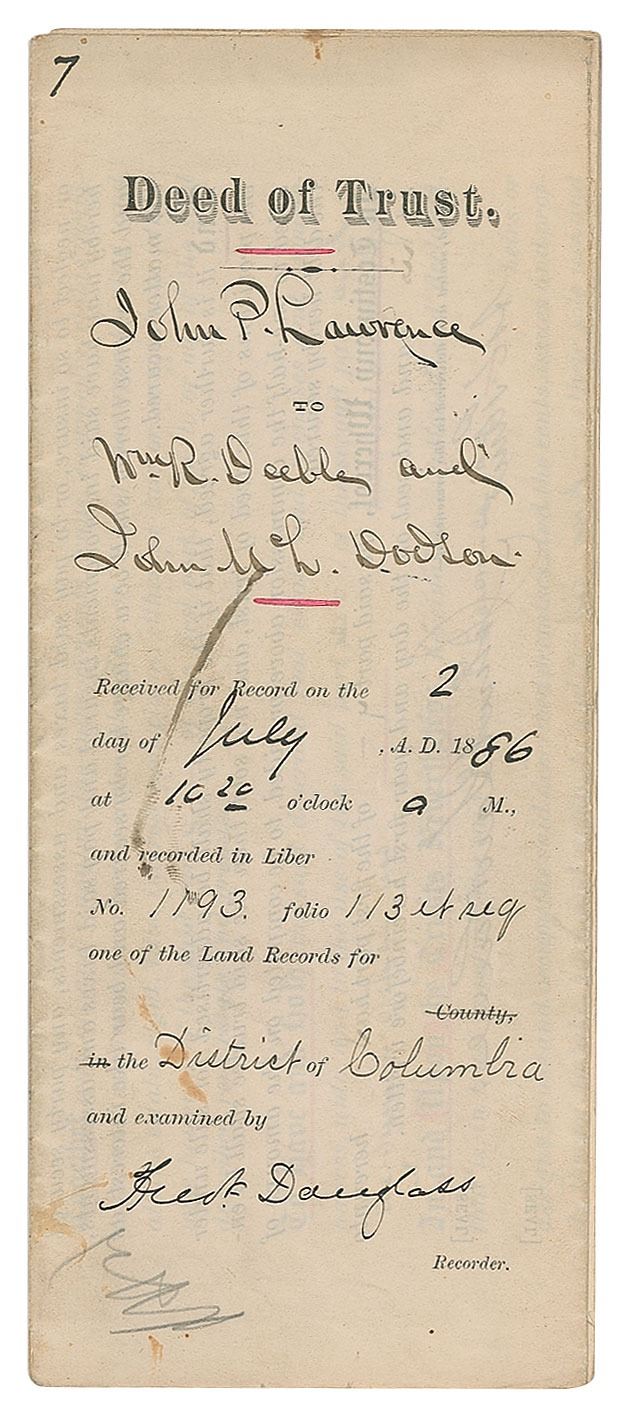 7
Deed of Trust.
John P. Lawrence
TO
Wm R. Deeble and
John McL. Dodson
Received for Record on the 2
day of July, A. D. 1886
at 10 20 o'clock a M.,
and recorded in Liber
No. 1193. folio 113 et seq
one of the Land Records for
County,
in the District of Columbia
and examined by
Fredk Douglass
Recorder.